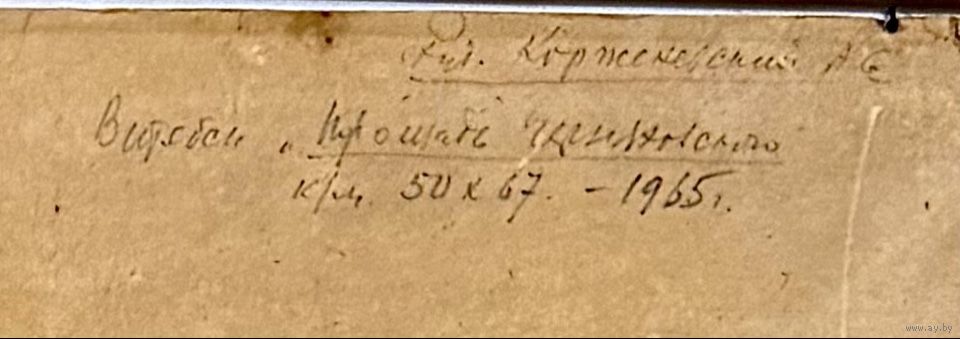 Худ. Корженевский А Е
Витебск „Площадь
к/м. 50 х 67. – 1965г.
www.ay.by